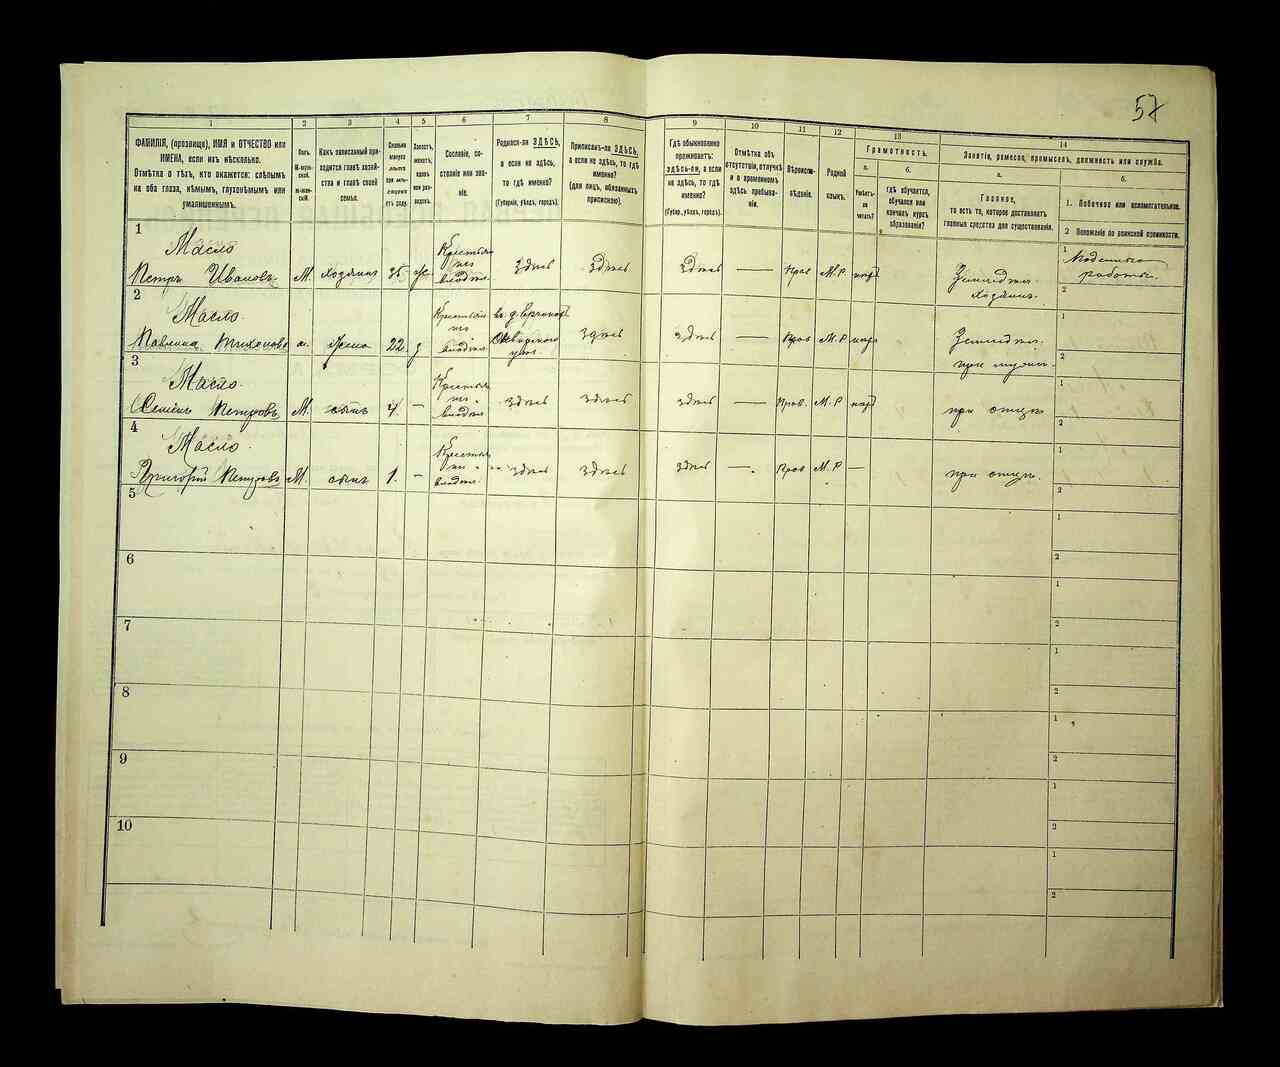 57
1 2 3 4 5 6 7 8 9 10 11 12 13 14
ФАМИЛІЯ, (прозвище), ИМЯ и ОТЧЕСТВО или
ИМЕНА, если ихъ нѣсколько.
Отмѣтка о тѣхъ, кто окажется: слѣпымъ
на оба глаза, нѣмымъ, глухонѣмымъ или
умалишеннымъ.
Полъ.
М-муж-
ской.
Ж-жен-
скій.
Какъ записанный при-
ходится главѣ хозяй-
ства и главѣ своей
семьи.
Сколько
минуло
лѣтъ
или мѣся-
цевъ
отъ роду.
Холостъ,
женатъ,
вдовъ
или раз-
веденъ.
Сословіе, со-
стояніе или зва-
ніе.
Родился-ли ЗДѢСЬ,
а если не здѣсь,
то гдѣ именно?
(Губернія, уѣздъ, городъ).
Приписанъ-ли ЗДѢСЬ,
а если не здѣсь, то гдѣ
именно?
(для лицъ, обязанныхъ
припискою).
Гдѣ обыкновенно
проживаетъ:
здѣсь-ли, а если
не здѣсь, то гдѣ
именно?
(Губер., уѣздъ, городъ).
Отмѣтка объ
отсутствіи, отлучкѣ
и о временномъ
здѣсь пребыва-
ніи.
Вѣроиспо-
вѣданіе.
Родной
языкъ.
Грамотность.
а.
Умѣетъ-
ли
читать?
б.
гдѣ обучается,
обучался или
кончилъ курсъ
образованія?
Занятіе, ремесло, промыселъ, должность или служба.
а.
Главное,
то есть то, которое доставляетъ
главныя средства для существованія.
б.
1. Побочное или вспомогательное.
2 Положеніе по воинской повинности.
1
Масло
Петръ Ивановъ М. хозяинъ 35 ж. Крестьян. здѣсь здѣсь здѣсь — Прав М.Р.
хозяинъ.
Поденныя
работы.
1
2
2
Масло.
22 здѣсь здѣсь — Прав М.Р
1
2
3
Масло.
Семёнъ Петровъ М. сынъ — здѣсь здѣсь здѣсь — Прав. М.Р при отцѣ
1
2
4
Масло.
Григорій Петровъ М. сынъ 1. — здѣсь здѣсь здѣсь — Прав М.Р — при отцѣ.
1
2
5
1
2
6
1
2
7
1
2
8
1
2
9
1
2
10
1
2